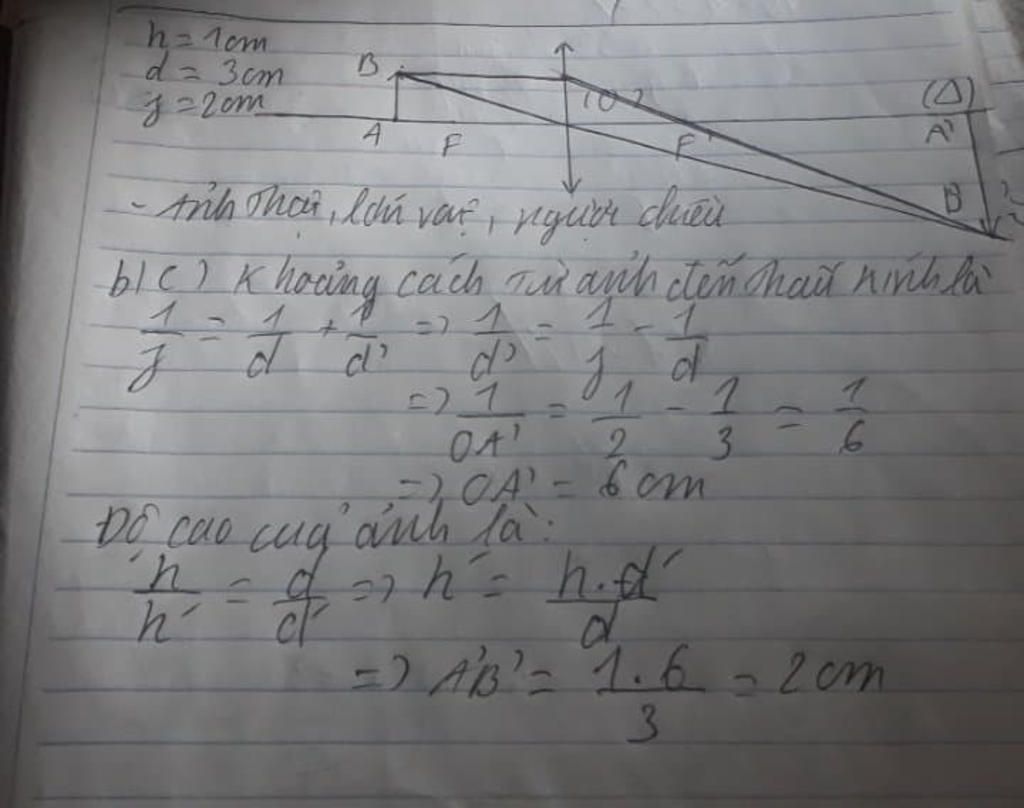 h = 1cm
d = 3cm
f = 2cm
B
(O)
(Δ)
A F F' A'
B
- Ảnh thật, lớn vật, ngược chiều
b/c) Khoảng cách từ ảnh đến thấu kính là
1/f = 1/d + 1/d' => 1/d' = 1/f - 1/d
=> 1/OA' = 1/2 - 1/3 = 1/6
=> OA' = 6cm
Độ cao của ảnh là:
h/h' = d/d' => h' = h.d'/d
=> A'B' = 1.6/3 = 2cm